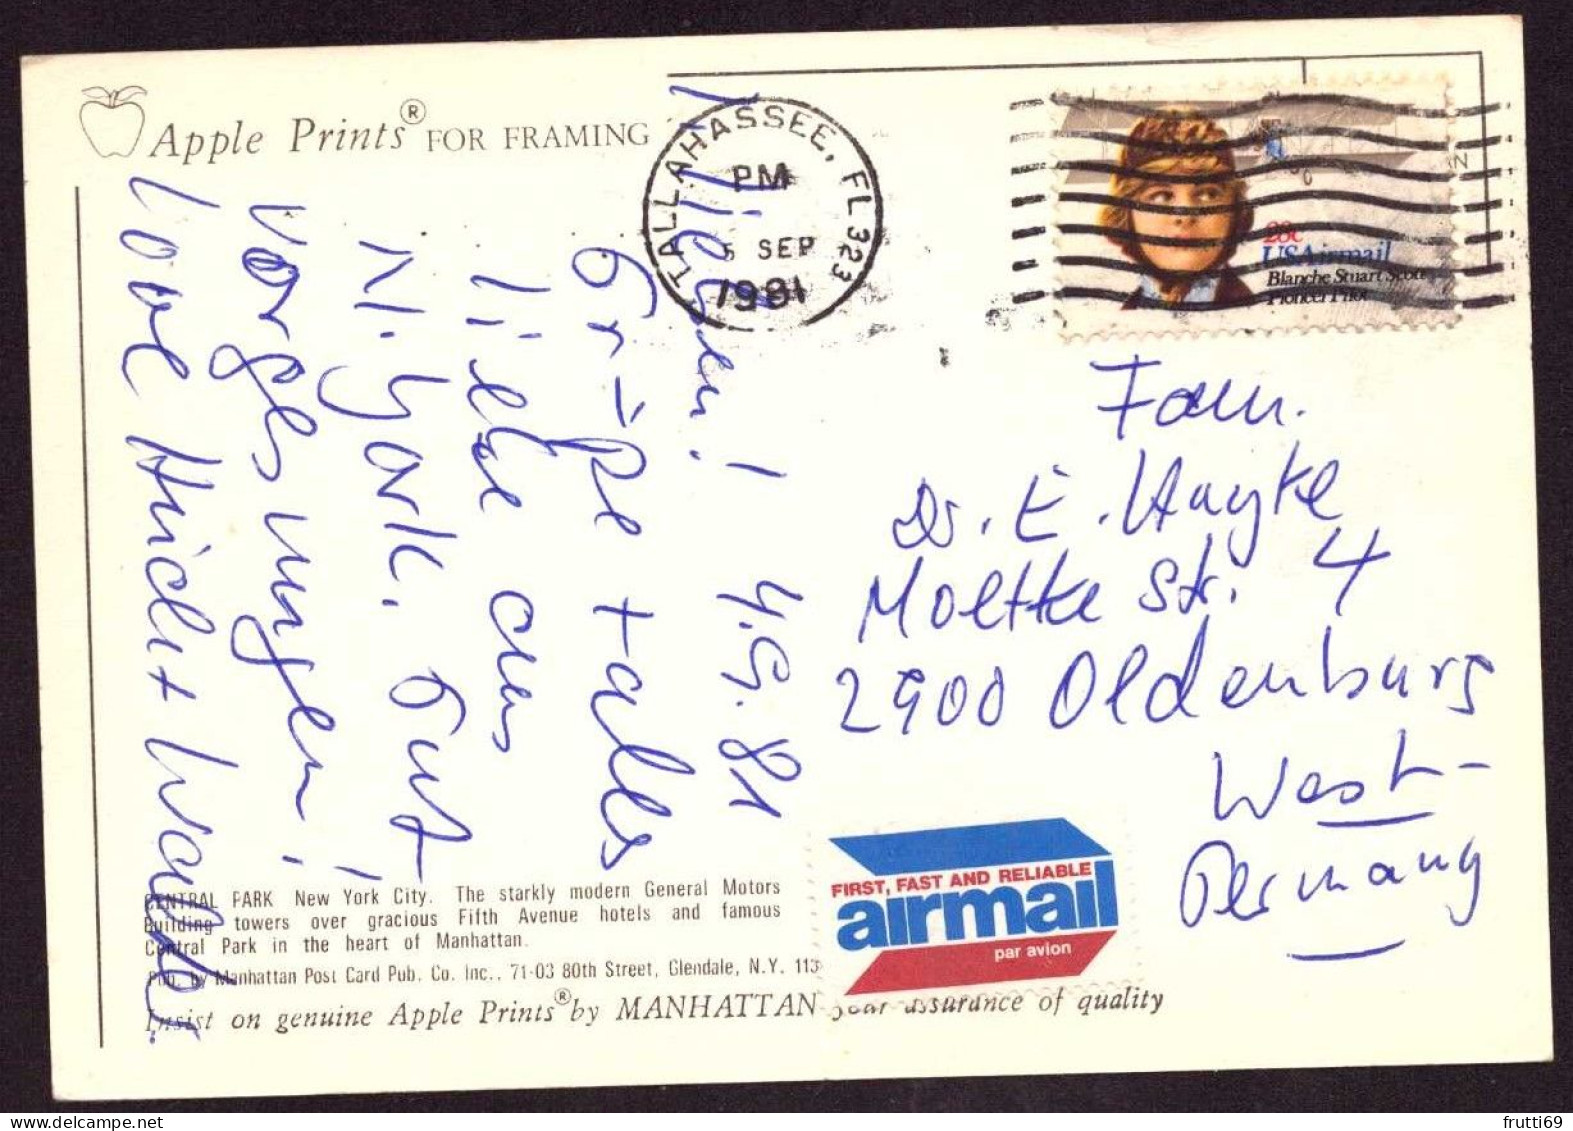 Apple Prints® FOR FRAMING
TALLAHASSEE, FL 323
PM
5 SEP
1981
28c
USAirmail
Blanche Stuart Scott
Pioneer Pilot
4.9.81
Ihr Lieben!
Grüße + alles
Liebe aus
N. York. Gut
vorgesungen!
love
Fam.
Dr. E. Huyke
Moltke Str. 4
2900 Oldenburg
West-
Germany
FIRST, FAST AND RELIABLE
airmail
par avion
CENTRAL PARK New York City. The starkly modern General Motors
Building towers over gracious Fifth Avenue hotels and famous
Central Park in the heart of Manhattan.
Pub. by Manhattan Post Card Pub. Co. Inc., 71-03 80th Street, Glendale, N.Y. 113
Insist on genuine Apple Prints® by MANHATTAN your assurance of quality
frutti69